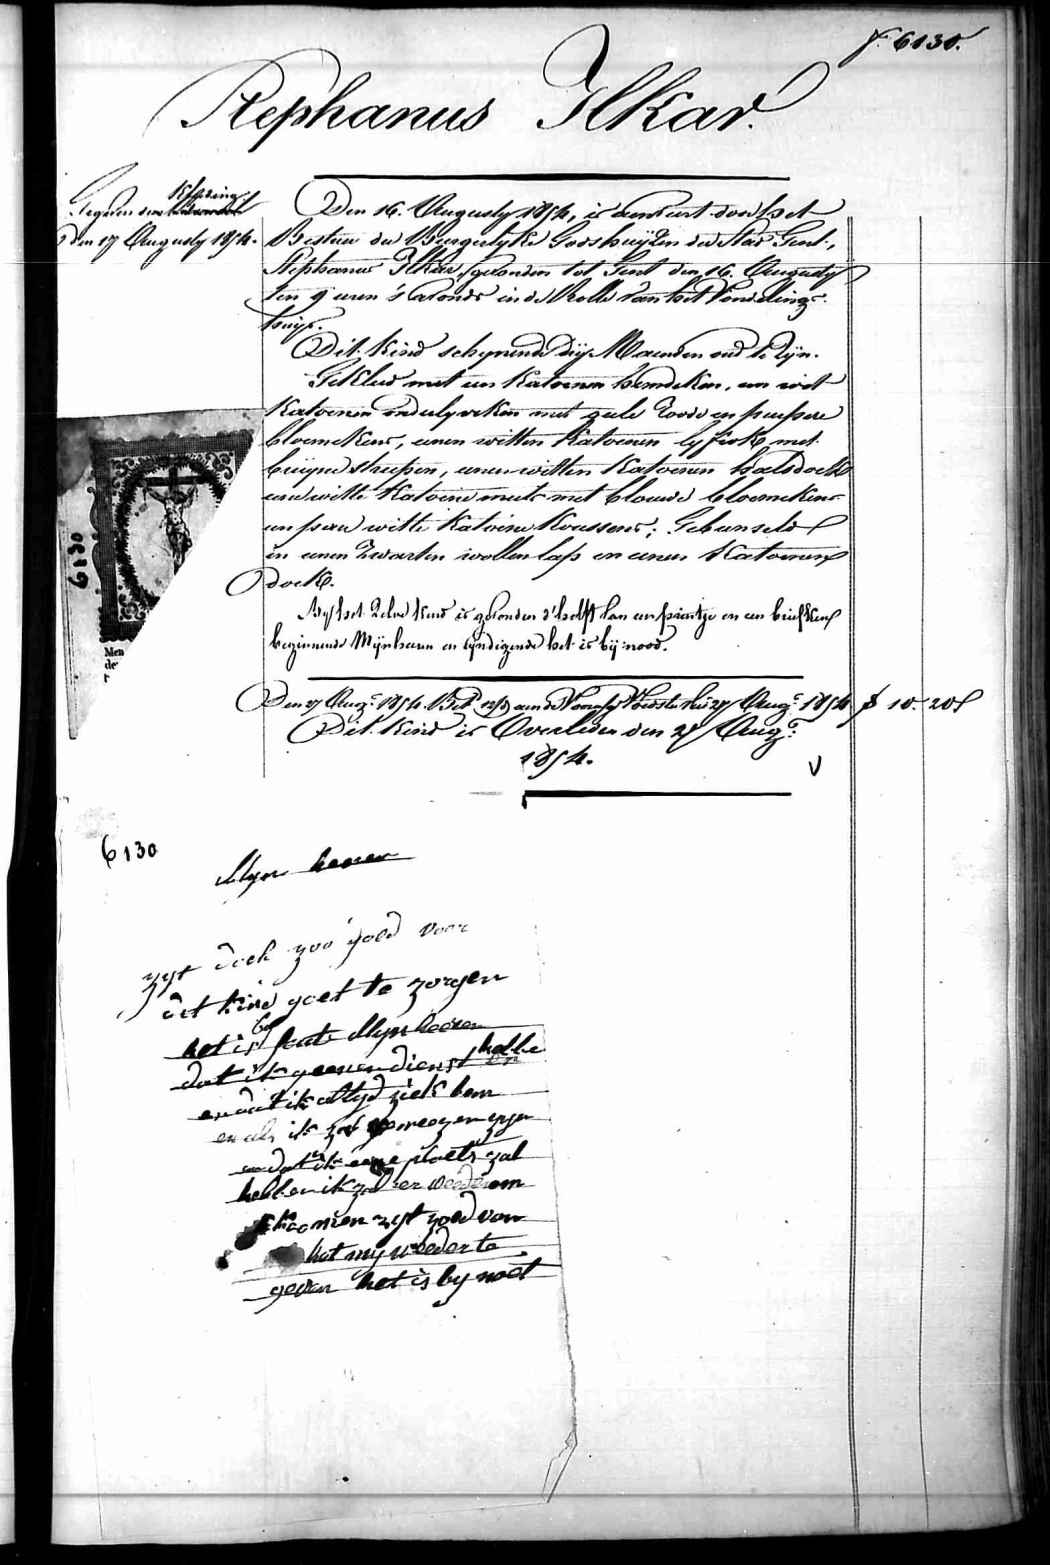 6130.
Stephanus Ilkar.
Gegeven den
Den 17 Augusty 1854.
Den 16. Augusty 1854, is aenveert door het
Bestuer der Burgerlyke Godshuyzen der Stad Gent,
Stephanus Ilkar, gevonden tot Gent den 16. Augusty
ten 9 uren 's avonds in de Rolle van het Vondeling-
huys.
Dit kind schynende dry Maenden oud te zyn.
Gekleed met een katoenen hemdeken, een wit
katoenen onderlyveken met geele roode en purpere
bloemekens, eenen witten katoenen lyfrok met
bruyne streepen, eenen witten katoenen halsdoek
eene witte katoene muts met blauwe bloemekens
een paer witte katoene koussens; Gebunseld
in eenen zwarten wollen lap en eenen katoenen
doek.
By het zelve kind is gevonden d'helft van een santje en een briefken
beginnende Mynheeren en eyndigende het is by nood.
6130
Men
de
r
Den 27 Augt 1854 aen de Voorsz Voedster 27 Augt 1854 10-20
Dit kind is Overleden den 27 Augt
1854.
V
6130
Myn heeren
zyt doch zoo goed voor
dit kind goet te zorgen
het is by Myn heeren
dat ik geenen dienst hebbe
en dat ik altyd ziek ben
en als ik zal genezen zyn
en dat ik eene plaets zal
hebben ik zal er wederom
koomen zyt goed van
het my weder te
geven het is by noet